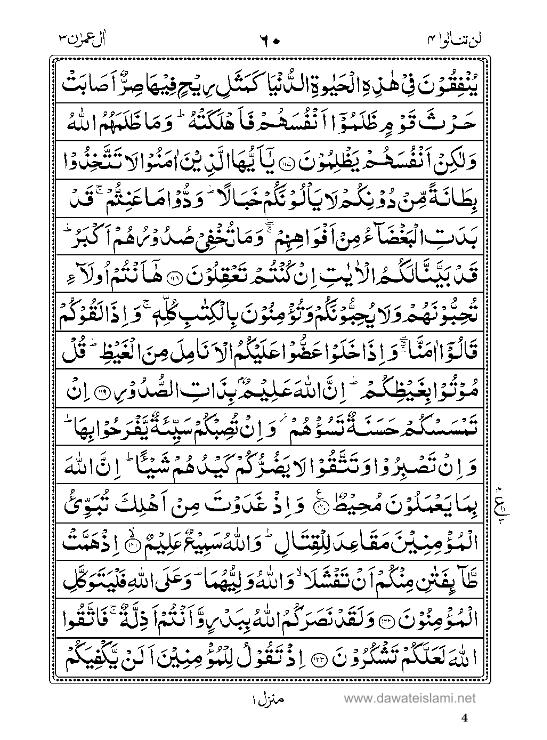 لن تنالوا ۴ ۶۰ اٰل عمرٰن ۳
يُنْفِقُوْنَ فِيْ هٰذِهِ الْحَيٰوةِ الدُّنْيَا كَمَثَلِ رِيْحٍ فِيْهَا صِرٌّ اَصَابَتْ
حَرْثَ قَوْمٍ ظَلَمُوْۤا اَنْفُسَهُمْ فَاَهْلَكَتْهُ ؕ وَمَا ظَلَمَهُمُ اللّٰهُ
وَلٰكِنْ اَنْفُسَهُمْ يَظْلِمُوْنَ ﴿۱۱۷﴾ يٰۤاَيُّهَا الَّذِيْنَ اٰمَنُوْا لَا تَتَّخِذُوْا
بِطَانَةً مِّنْ دُوْنِكُمْ لَا يَاْلُوْنَكُمْ خَبَالًا ؕ وَدُّوْا مَا عَنِتُّمْ ۚ قَدْ
بَدَتِ الْبَغْضَآءُ مِنْ اَفْوَاهِهِمْ ۖۚ وَمَا تُخْفِيْ صُدُوْرُهُمْ اَكْبَرُ ؕ
قَدْ بَيَّنَّا لَكُمُ الْاٰيٰتِ اِنْ كُنْتُمْ تَعْقِلُوْنَ ﴿۱۱۸﴾ هٰۤاَنْتُمْ اُولَآءِ
تُحِبُّوْنَهُمْ وَلَا يُحِبُّوْنَكُمْ وَتُؤْمِنُوْنَ بِالْكِتٰبِ كُلِّهٖ ۚ وَاِذَا لَقُوْكُمْ
قَالُوْۤا اٰمَنَّا ۖۚ وَاِذَا خَلَوْا عَضُّوْا عَلَيْكُمُ الْاَنَامِلَ مِنَ الْغَيْظِ ؕ قُلْ
مُوْتُوْا بِغَيْظِكُمْ ؕ اِنَّ اللّٰهَ عَلِيْمٌۢ بِذَاتِ الصُّدُوْرِ ﴿۱۱۹﴾ اِنْ
تَمْسَسْكُمْ حَسَنَةٌ تَسُؤْهُمْ ؗ وَاِنْ تُصِبْكُمْ سَيِّئَةٌ يَّفْرَحُوْا بِهَا ؕ
وَاِنْ تَصْبِرُوْا وَتَتَّقُوْا لَا يَضُرُّكُمْ كَيْدُهُمْ شَيْـًٔا ؕ اِنَّ اللّٰهَ
بِمَا يَعْمَلُوْنَ مُحِيْطٌ ﴿۱۲۰﴾ وَاِذْ غَدَوْتَ مِنْ اَهْلِكَ تُبَوِّئُ
الْمُؤْمِنِيْنَ مَقَاعِدَ لِلْقِتَالِ ؕ وَاللّٰهُ سَمِيْعٌ عَلِيْمٌ ﴿۱۲۱﴾ اِذْ هَمَّتْ
طَّآئِفَتٰنِ مِنْكُمْ اَنْ تَفْشَلَا ۙ وَاللّٰهُ وَلِيُّهُمَا ؕ وَعَلَى اللّٰهِ فَلْيَتَوَكَّلِ
الْمُؤْمِنُوْنَ ﴿۱۲۲﴾ وَلَقَدْ نَصَرَكُمُ اللّٰهُ بِبَدْرٍ وَّاَنْتُمْ اَذِلَّةٌ ۚ فَاتَّقُوا
اللّٰهَ لَعَلَّكُمْ تَشْكُرُوْنَ ﴿۱۲۳﴾ اِذْ تَقُوْلُ لِلْمُؤْمِنِيْنَ اَلَنْ يَّكْفِيَكُمْ
منزل ۱
www.dawateislami.net
4